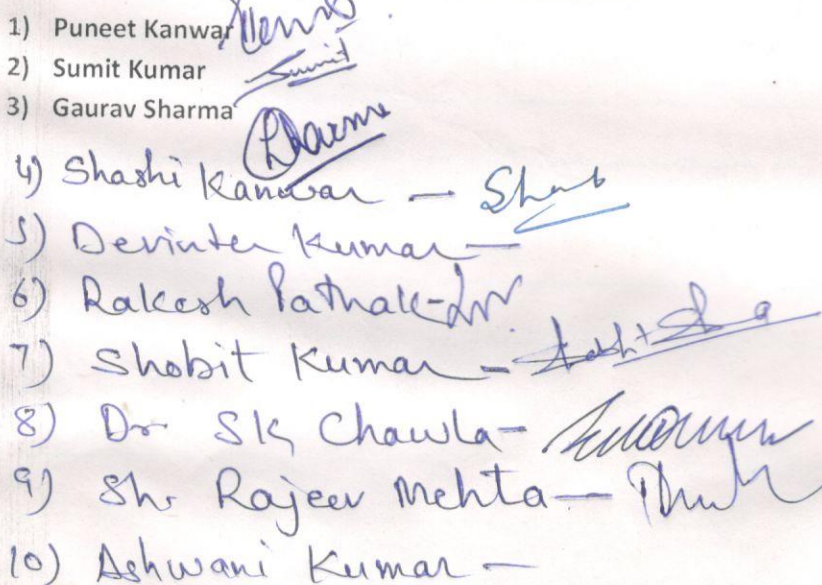 1) Puneet Kanwar
2) Sumit Kumar Sumit
3) Gaurav Sharma Sharma
4) Shashi Kanwar - Shash
5) Devinter Kumar -
6) Rakesh Pathak -
7) Shobit Kumar -
8) Dr SK Chawla -
9) Sh. Rajeev Mehta -
10) Ashwani Kumar -